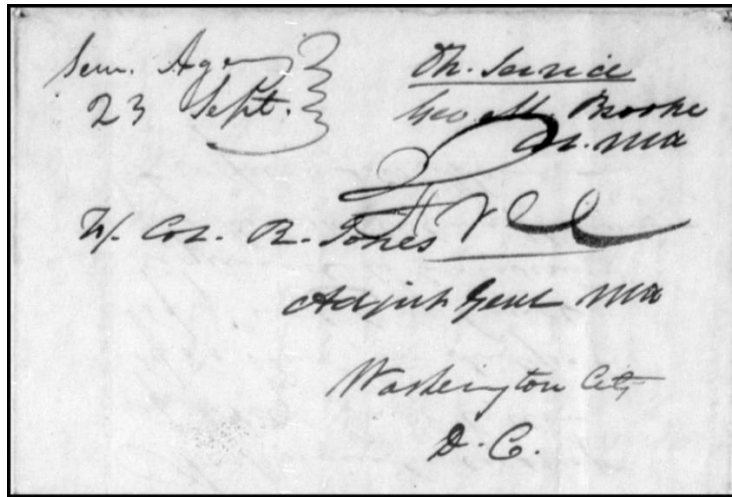 Sem. Agy
23 Sept.
On. Service
Geo M. Brooke
Free
To/ Col. R. Jones
Adjut Genl USA
Washington City
D. C.